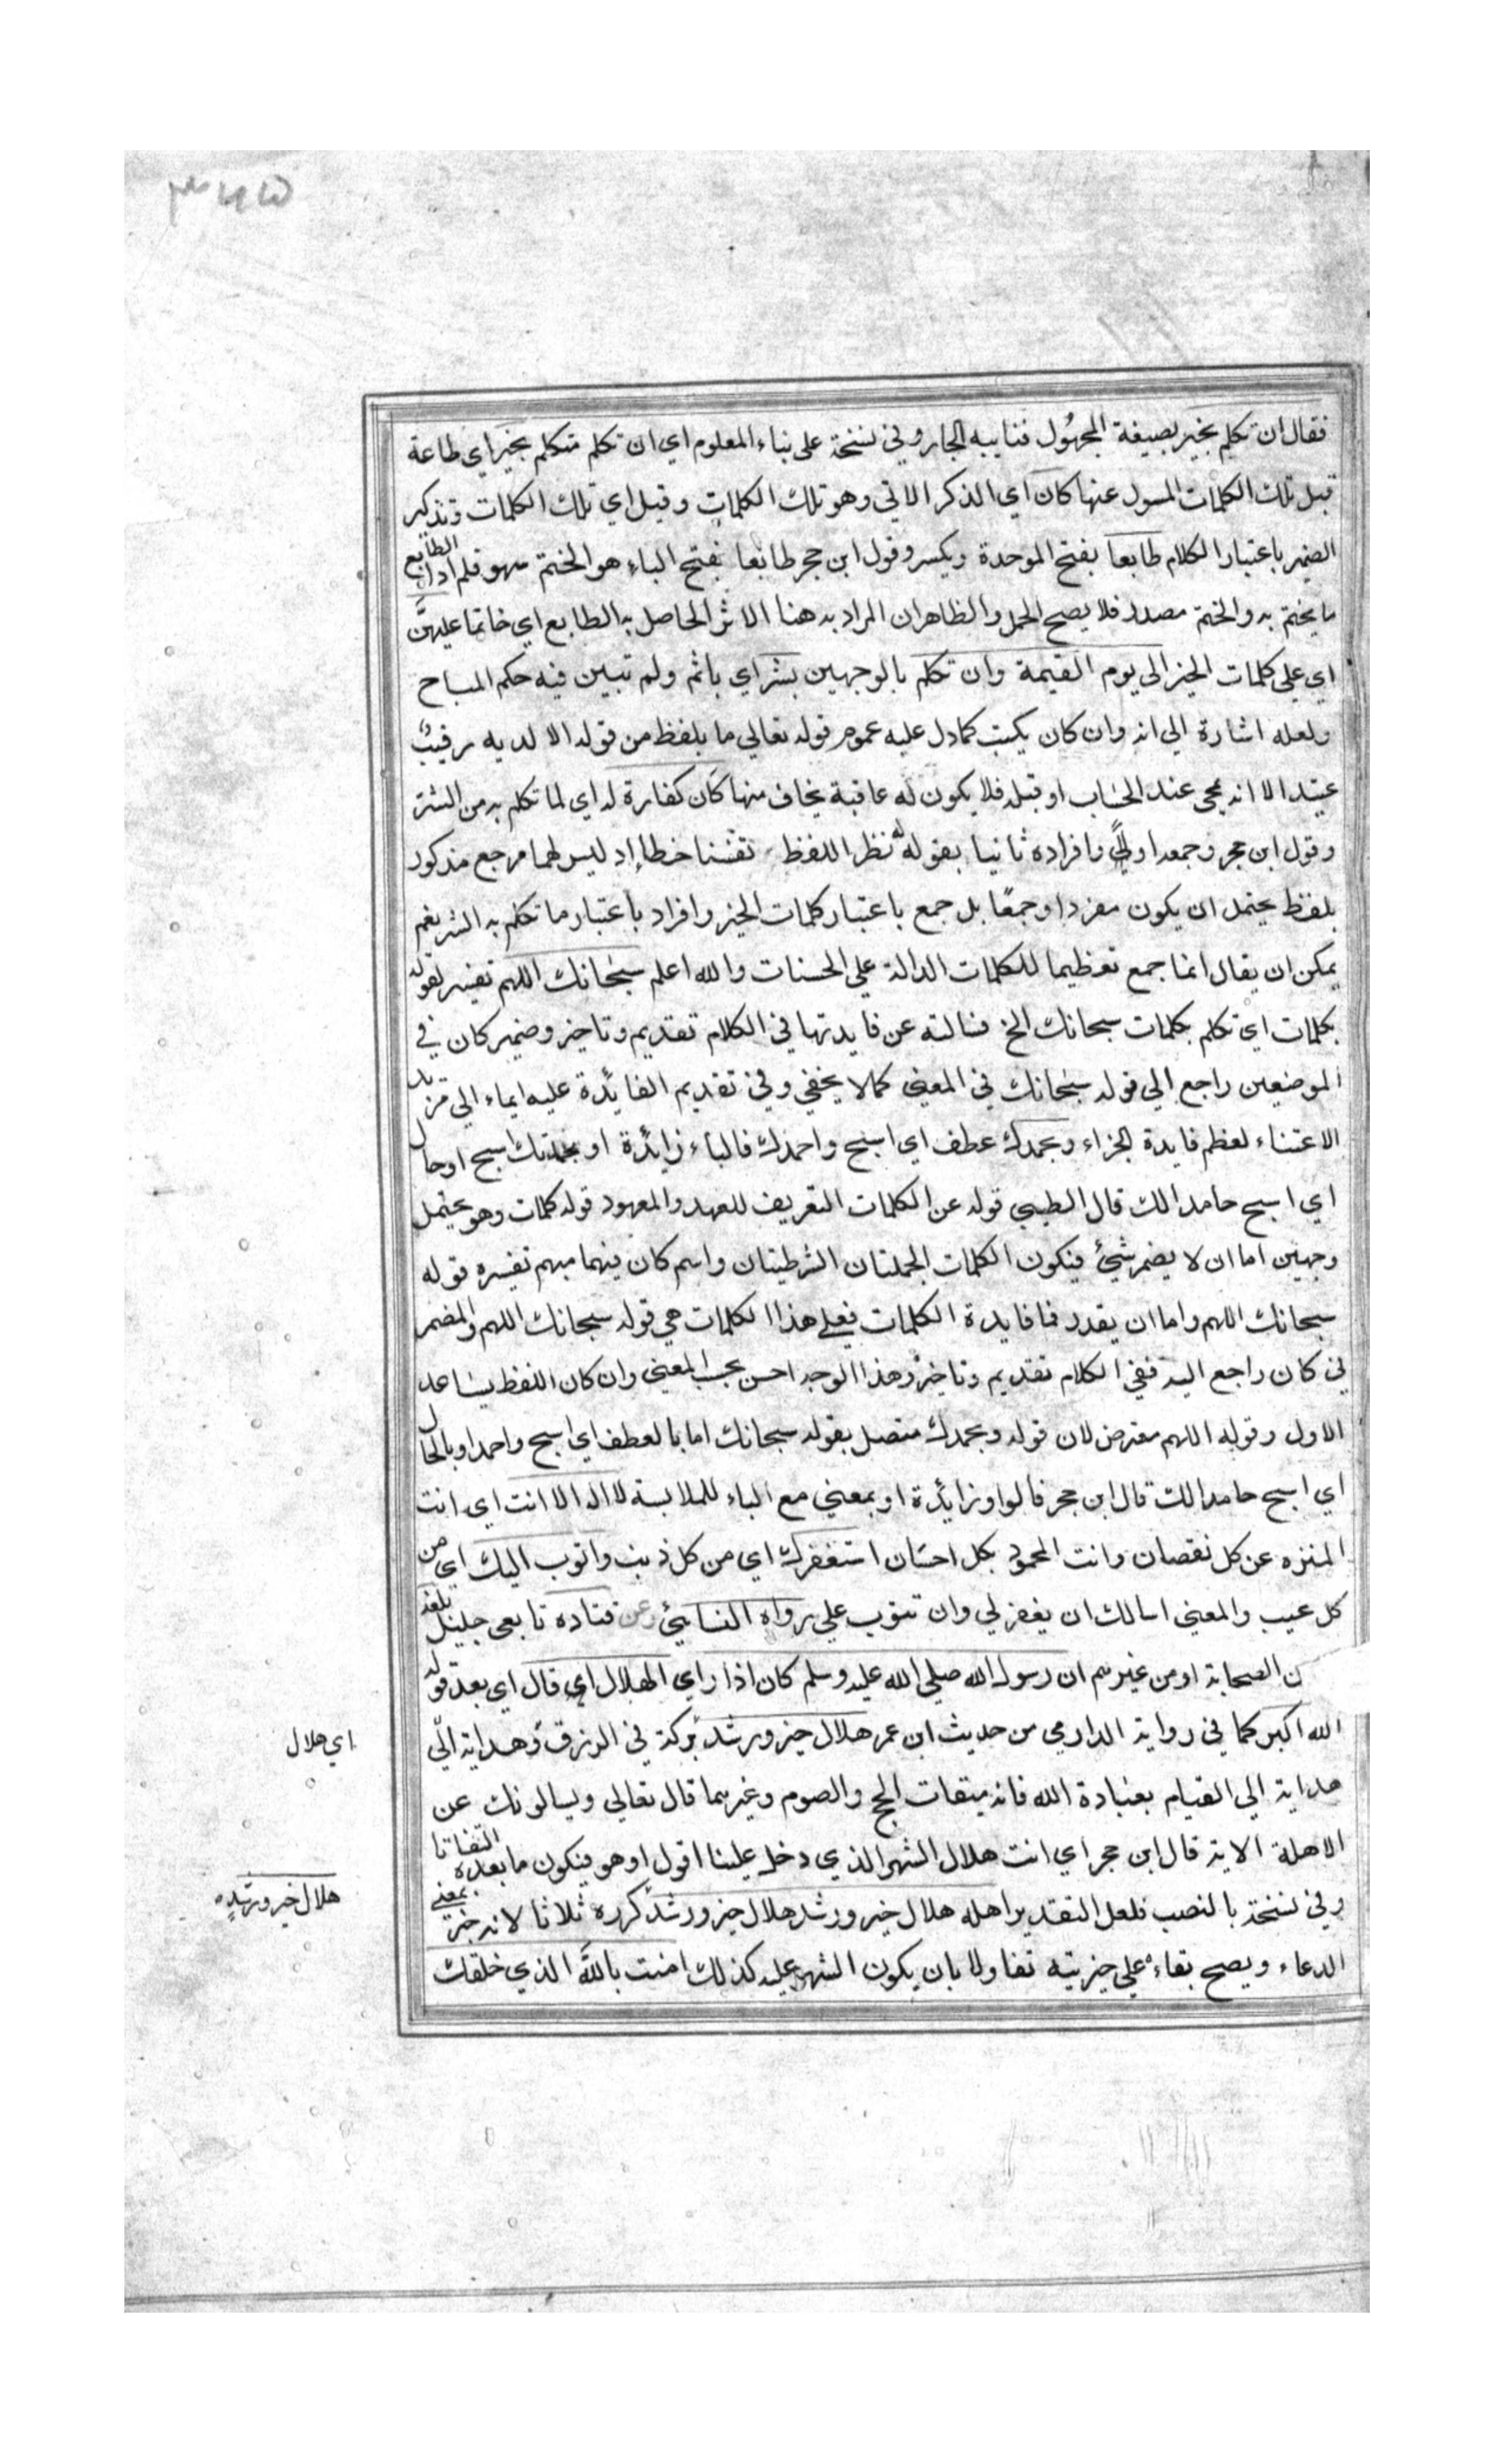 فقال ان تكلم بخير بصيغة المجهول فنايبه الجار وفي نسخة على بناء المعلوم اي ان تكلم متكلم بخير اي طاعة
قبل تلك الكلمات المسول عنها كان اي الذكر الاتي وهو تلك الكلمات وقيل اي تلك الكلمات وتذكير
الضمير باعتبار الكلام طابعا بفتح الموحدة ويكسر وقول ابن حجر طابعا بفتح الباء هو الختم سهو قلم اذ الطابع
ما يختم به والختم مصدر فلا يصح الحمل والظاهر ان المراد به هنا الاثر الحاصل به الطابع اي خاتما عليهن
اي على كلمات الخير الى يوم القيمة وان تكلم بالوجهين بشر اي باثم ولم تبين فيه حكم المباح
ولعله اشارة الي انه وان كان يكتب كما دل عليه عموم قوله تعالي ما يلفظ من قوله الا لديه رقيب
عتيد الا انه يمحي عند الحساب او قبله فلا يكون له عاقبة يخاف منها كان كفارة له اي لما تكلم به من الشر
وقول ابن حجر وجمعه اولا وافراده ثانيا بقوله له نظر اللفظ تفننا خطا اذ ليس لهما مرجع مذكور
بلفظ يحتمل ان يكون مفردا وجمعا بل جمع باعتبار كلمات الخير وافراد باعتبار ما تكلم به الشر نعم
يمكن ان يقال انما جمع تعظيما للكلمات الدالة علي الحسنات والله اعلم سبحانك اللهم تفسير لقوله
بكلمات اي تكلم بكلمات سبحانك الخ فسالته عن فايدتها في الكلام تقديم وتاخير وضمير كان في
الموضعين راجع الي قوله سبحانك في المعني كما لا يخفي وفي تقديم الفائدة عليه ايماء الي مزيد
الاعتناء لعظم فايدة الجزاء وبحمدك عطف اي اسبح واحمدك فالباء زائدة او بحمدتك اسبح او حال
اي اسبح حامدا لك قال الطيبي قوله عن الكلمات التعريف للعهد والمعهود قوله كلمات وهو يحتمل
وجهين اما ان لا يضمر شيئ فيكون الكلمات الجملتان الشرطيتان واسم كان فيهما مبهم تفسره قوله
سبحانك اللهم واما ان يقدر فما فايدة الكلمات فعلي هذا الكلمات هي قوله سبحانك اللهم والمضمر
في كان راجع اليه ففي الكلام تقديم وتاخير وهذا الوجه احسن بحسب المعني وان كان اللفظ يساعد
الاول وقوله اللهم معترض لان قوله وبحمدك متصل بقوله سبحانك اما بالعطف اي اسبح واحمد او بالحال
اي اسبح حامدا لك قال ابن حجر فالواو زائدة او بمعني مع الباء للملابسة لا اله الا انت اي انت
المنزه عن كل نقصان وانت المحمود بكل احسان استغفرك اي من كل ذنب واتوب اليك اي من
كل عيب والمعني اسالك ان يغفر لي وان تتوب علي رواه النسايئ وعن قتادة تابعي جليل بلغه
ن الصحابة او من غيرهم ان رسول الله صلي الله عليه وسلم كان اذا راي الهلال اي قال اي بعد قوله
الله اكبر كما في رواية الدارمي من حديث ابن عمر هلال خير ورشد بركة في الرزق وهداية الي
هداية الي القيام بعبادة الله فانه ميقات الحج والصوم وغيرهما قال تعالي ويسالونك عن
الاهلة الاية قال ابن حجر اي انت هلال الشهر الذي دخل علينا اقول او هو فيكون ما بعده التفاتا
وفي نسخة بالنصب فلعل التقدير اهله هلال خير ورشد هلال خير ورشد كرره ثلاثا لانه خبر بمعني
الدعاء ويصح بقاءه علي خبريته تفاولا بان يكون الشهر عليه كذلك امنت بالله الذي خلقك
اي هلال
هلال خير ورشد